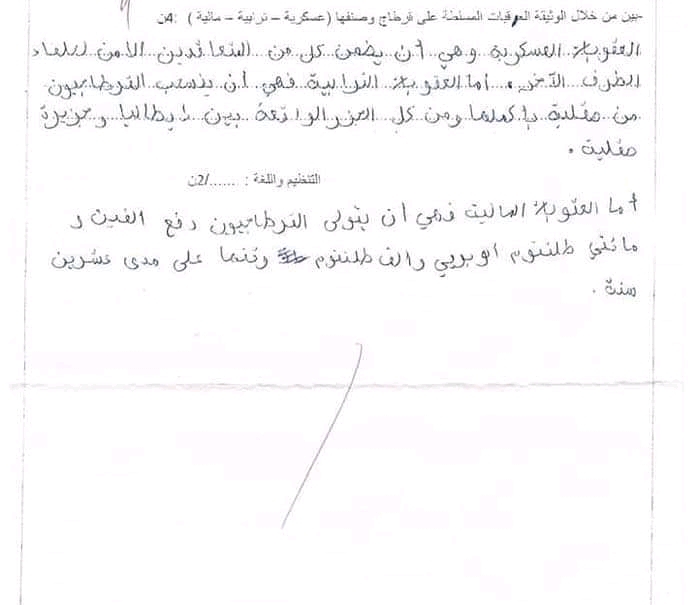 -بين من خلال الوثيقة العقوبات المسلطة على قرطاج وصنفها (عسكرية – ترابية – مالية) :4ن
العقوبة العسكرية وهي أن يضمن كل من المتعاقدين الأمن لحلفاء
الطرف الآخر، أما العقوبة الترابية فهي أن ينسحب القرطاجيون
من صقلية بأكملها ومن كل الجزر الواقعة بين إيطاليا وجزيرة
صقلية.
التنظيم واللغة : ....../2ن
أما العقوبة المالية فهي أن يتولى القرطاجيون دفع الفين و
مائتي طلنتوم أوبريي والف طلنتوم وتنما على مدى عشرين
سنة.